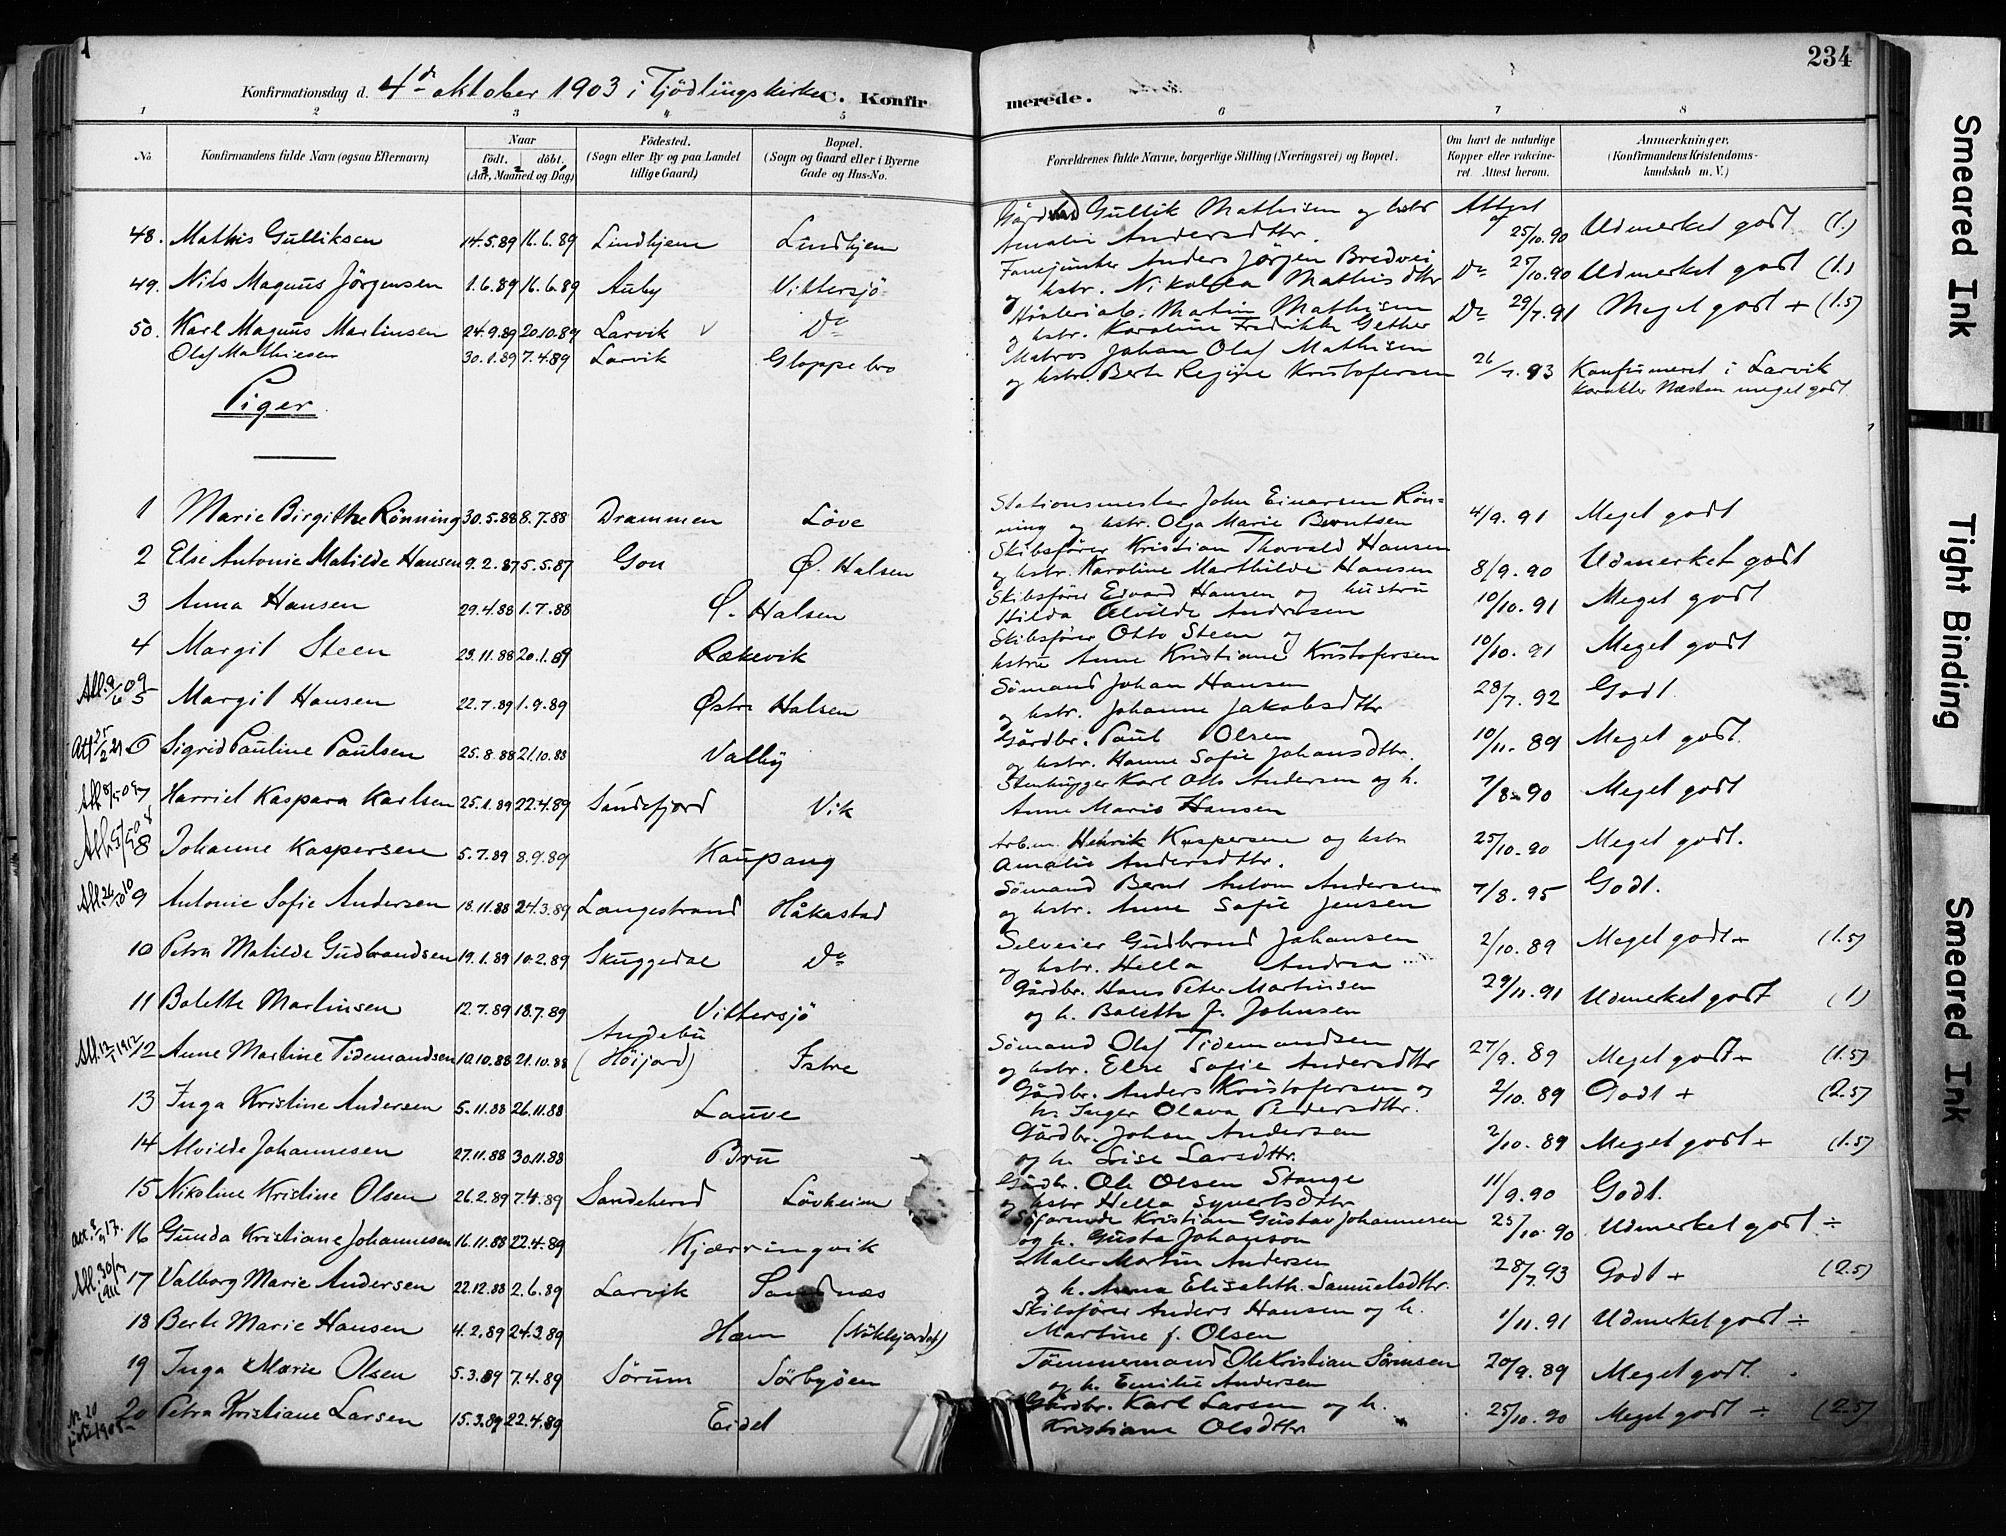 234
Konfirmationsdag d. 4de oktober 1903 i Tjödlingskirke C. Konfirmerede.
1 2 3 4 5 6 7 8
No
Konfirmandens fulde Navn (ogsaa Efternavn)
Naar
födt. döbt.
(Aar, Maaned og Dag)
Födested.
(Sogn eller By og paa Landet
tillige Gaard)
Bopæl.
(Sogn og Gaard eller i Byerne
Gade og Hus-No.
Forældrenes fulde Navne, borgerlige Stilling (Næringsvei) og Bopæl.
Om havt de naturlige
Kopper eller vakcine-
ret. Attest herom.
Anmærkninger.
(Konfirmandens Kristendoms-
kundskab m. V.)
48. Mathis Gulliksen 14.5.89 16.6.89 Lindhjem Lindhjem Gullik Mathisen og hstr Amalie Andersdttr. Attest af 25/10.90 Udmerket godt (1.)
49. Nils Magnus Jörgensen 1.6.89 16.6.89 Auby Vittersjö Anders Jörgen Bredvei og hstr. Nikolea Mathisdttr Do 25/10.90 Udmerket godt (1.)
50. Karl Magnus Martinsen 24.9.89 20.10.89 Larvik Do Martin Mathisen og hstr. Karoline Fredrikke Gether Do 29/7.91 Meget godt + (1.5)
Olaf Mathiesen 30.1.89 7.4.89 Larvik Gloppe bro Matros Johan Olaf Mathisen og hstr. Berte Regine Kristofersen 26/7.93 Konfirmeret i Larvik
karakter Næsten meget godt
Piger
1 Marie Birgithe Rönning 30.5.88 8.7.88 Drammen Löve Stationsmester John Einarsen Rön=
ning og hstr. Olga Marie Berntsen 4/9.91 Meget godt
2 Else Antonie Matilde Hansen 9.2.87 5.5.87 Gon Ø. Halsen Skibsförer Kristian Thorvald Hansen
og hstr. Karoline Marthilde Hansen 8/9.90 Udmerket godt
3 Anna Hansen 29.4.88 1.7.88 Ø. Halsen Skibsförer Edvard Hansen og hustru
Hilda Alvilde Andersen 10/10.91 Meget godt
4 Margit Steen 23.11.88 20.1.89 Rækevik Skibsförer Otto Steen og
hstru Anne Kristiane Kristofersen 10/10.91 Meget godt
Att. 9/6 09 5 Margit Hansen 22.7.89 1.9.89 Østre Halsen Sömand Johan Hansen
og hstr. Johanne Jakobsdttr 28/7.92 Godt.
Att 25/2 21 6 Sigrid Pauline Paulsen 25.8.88 21.10.88 Valby Gårdbr. Paul Olsen
og hstr. Hanne Sofie Johansdttr. 10/11.89 Meget godt.
7 Harriet Kaspara Karlsen 25.1.89 22.4.89 Sandefjord Vik Stenhugger Karl Otto Andersen og h.
Anne Marie Hansen 7/8.90 Meget godt
8 Johanne Kaspersen 5.7.89 8.9.89 Kaupang Arb.m. Henrik Kaspersen og hstr
Amalie Andersdttr. 25/10.90 Meget godt.
9 Antonie Sofie Andersen 18.11.88 24.3.89 Langestrand Håkastad Sömand Bernt Anton Andersen
og hstr. Anne Sofie Jensen 7/8.95 Godt.
10 Petra Matilde Gudbrandsen 19.1.89 10.2.89 Skuggedal Do Selveier Gudbrand Johansen
og hstr. Hella Andrea 2/10.89 Meget godt + (1.5)
11 Bolette Martinsen 12.7.89 18.7.89 Vittersjö Gårdbr. Hans Peter Martinsen
og h. Bolette f. Johnsen 29/11.91 Udmerket godt (1)
Att. 12/1 1912 12 Anne Martine Tidemandsen 10.10.88 21.10.88 Andebu
(Höijord) Istre Sömand Olaf Tidemandsen
og hstr. Else Sofie Andersdttr 27/9.89 Meget godt + (1.5)
13 Inga Kristine Andersen 5.11.88 26.11.88 Lauve Gårdbr. Anders Kristofersen og
h. Inger Olava Pedersdttr. 2/10.89 Godt + (2.5)
14 Alvilde Johannesen 27.11.88 30.11.88 Bru Gårdbr. Johan Andersen
og h. Lise Larsdttr. 2/10.89 Meget godt + (1.5)
15 Nikoline Kristine Olsen 26.2.89 7.4.89 Sandeherred Lövheim Gårdbr. Ole Olsen Stange
og hstr Hella Syvertsdttr 11/9.90 Godt.
16 Gunda Kristiane Johannesen 16.11.88 22.4.89 Kjærringvik Söfarende Kristian Gustav Johannesen
og h. Gusta Johanson 25/10.90 Udmerket godt ÷
17 Valborg Marie Andersen 22.12.88 2.6.89 Larvik Sandnæs Maler Martin Andersen
og h. Anna Elisabeth Samuelsdttr. 28/7.93 Godt + (2.5)
18 Berte Marie Hansen 4.2.89 24.3.89 Ham Skibsförer Anders Hansen og h.
Martine f. Olsen 1/11.91 Udmerket godt ÷
19 Inga Marie Olsen 5.3.89 7.4.89 Sörum Sörbyöen Tömmermand Ole Kristian Sörensen
og h. Emilie Andersen 20/9.89 Meget godt.
20 Petra Kristiane Larsen 15.3.89 22.4.89 Eidet Gårdbr. Karl Larsen og h.
Kristiane Olsdttr 25/10.90 Meget godt ÷ (2.5)
Smeared Ink
Tight Binding
Smeared Ink